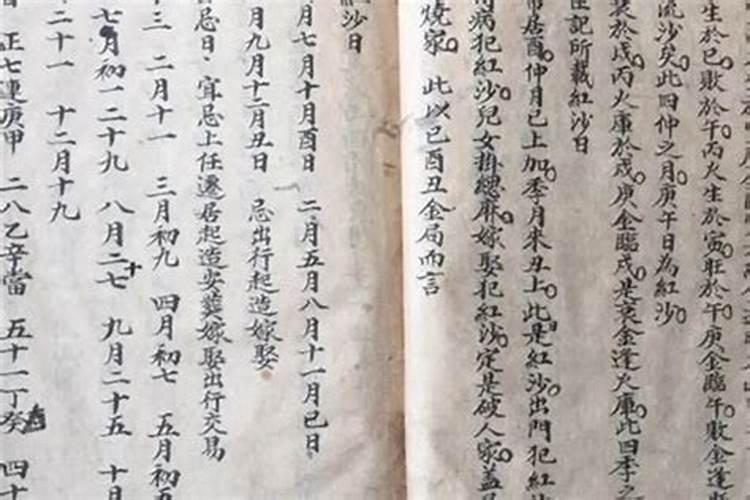 生於巳敗於午丙火生於寅旺於午庚金臨午敗金逢
流沙矣此四仲之月庚午日為紅沙
於戌丙火庫於戌庚金臨戌是衰金逢火庫此四季之
記所載紅沙日
居酉仲月巳上加季月未丑上此是紅沙出門犯紅
病犯紅沙兒女掛緦麻嫁娶犯紅沙定是破人家蓋
燒家 此以巳酉丑金局而言
紅沙日
月七月十月酉日 二月五月八月十一月巳日
月九月十二月丑日 忌出行起造嫁娶
忌日 宜忌上任遷居起造安葬嫁娶出行交易
三 二月十一 三月初九 四月初七 五月初五
七月初一二十九 八月二十七 九月二十五 十月
二十一 十二月十九
正七連庚甲 二八乙辛當 五十一丁癸 四十